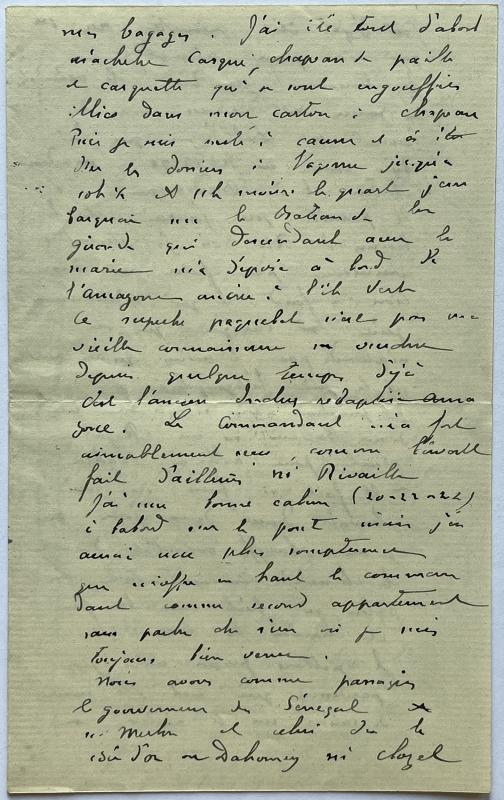 mes bagages. J'ai été tout d'abord
m'acheter casque, chapeau de paille
et casquette qui se sont engouffrés
illico dans mon carton à chapeau
Puis je me suis mis à causer et à
les dossiers à jusqu'à
10h ½ A 11h moins le quart j'em
barquais sur le bateau de la
gironde qui descendant avec la
marée m'a déposé à bord de
l'amazone ancré à l'île Verte
Ce superbe paquebot n'est pas une
vieille connaissance
depuis quelque temps déjà
c'est l'ancien Indus rebaptisé ama
zone. Le Commandant m'a fort
aimablement reçu, comme l'avait
fait d'ailleurs Mr Rivaille
J'ai une bonne cabine (20-22-24)
à babord sur le pont mais j'en
aurai une plus somptueuse
que m'offre en haut le comman
dant comme second appartement
sans parler du sien où je suis
toujours bien venu.
Nous avons comme passagers
le gouverneur du Sénégal
Mr Merlin et celui de la
côte d'or ou Dahomey Mr Clozel